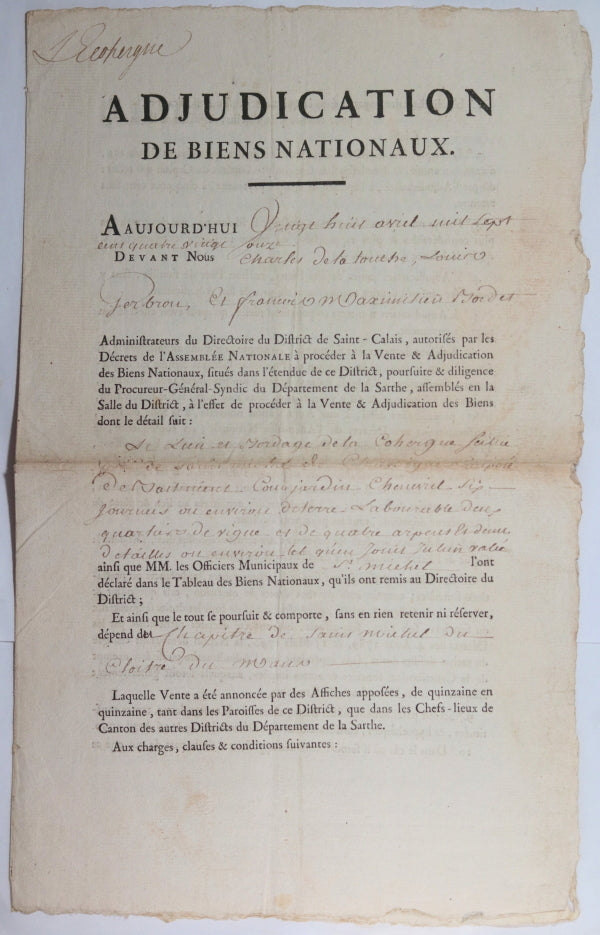 L'Ecohergne
ADJUDICATION
DE BIENS NATIONAUX.
AAUJOURD'HUI Vingt huit avril mil sept
cens quatre vingt onze
DEVANT NOUS Charles de la touche, Louis
et françois Maximilien Bordet
Administrateurs du Directoire du District de Saint-Calais, autorisés par les
Décrets de l'ASSEMBLÉE NATIONALE à procéder à la Vente & Adjudication
des Biens Nationaux, situés dans l'étendue de ce District, poursuite & diligence
du Procureur-Général-Syndic du Département de la Sarthe, assemblés en la
Salle du District, à l'effet de procéder à la Vente & Adjudication des Biens
dont le détail suit :
Le Lieu et Bordage de la Cohergne
de saint michel de
de Bastiment Cour jardin Chenevril Six
Journées ou environ de terre Labourable deux
quartiers de vigne et de quatre arpens et demi
de tailles ou environ tel qu'en jouit
ainsi que MM. les Officiers Municipaux de St. michel l'ont
déclaré dans le Tableau des Biens Nationaux, qu'ils ont remis au Directoire du
District ;
Et ainsi que le tout se poursuit & comporte, sans en rien retenir ni réserver,
dépend du Chapitre de saint michel du
Cloitre du mans
Laquelle Vente a été annoncée par des Affiches apposées, de quinzaine en
quinzaine, tant dans les Paroisses de ce District, que dans les Chefs-lieux de
Canton des autres Districts du Département de la Sarthe.
Aux charges, clauses & conditions suivantes :